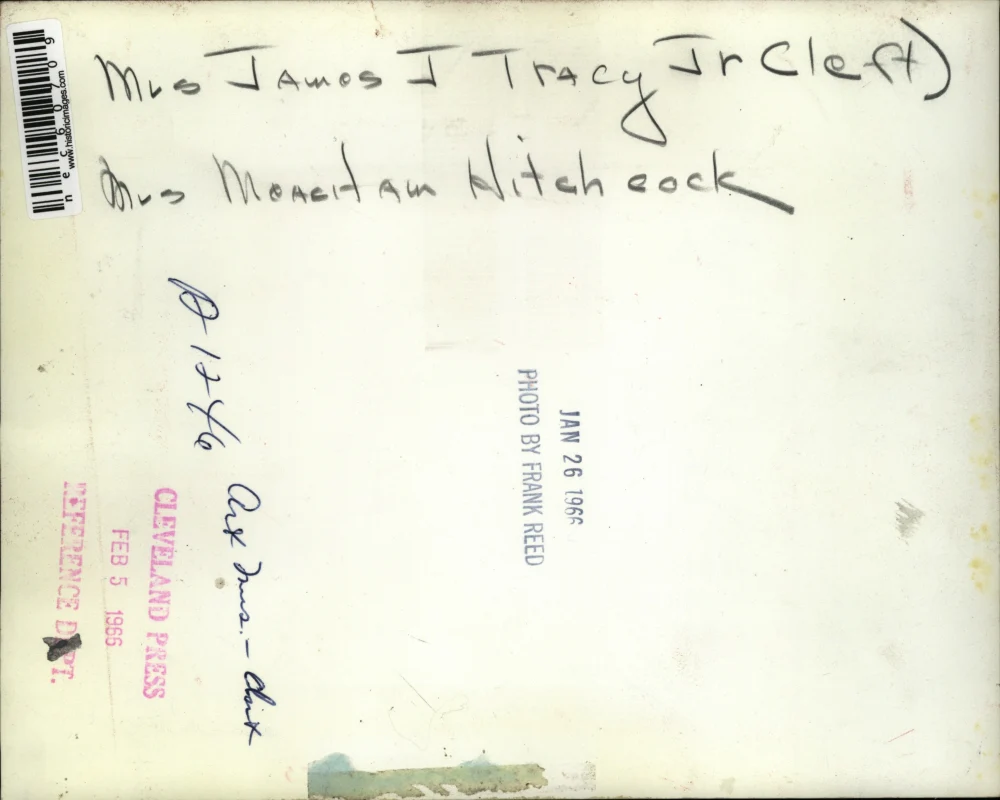 Mrs James J Tracy Jr (left)
Mrs Hitchcock
D-1246
Art Mus. -
JAN 26 1966
PHOTO BY FRANK REED
CLEVELAND PRESS
FEB 5 1966
REFERENCE DEPT.
www.historicimages.com
nec60709